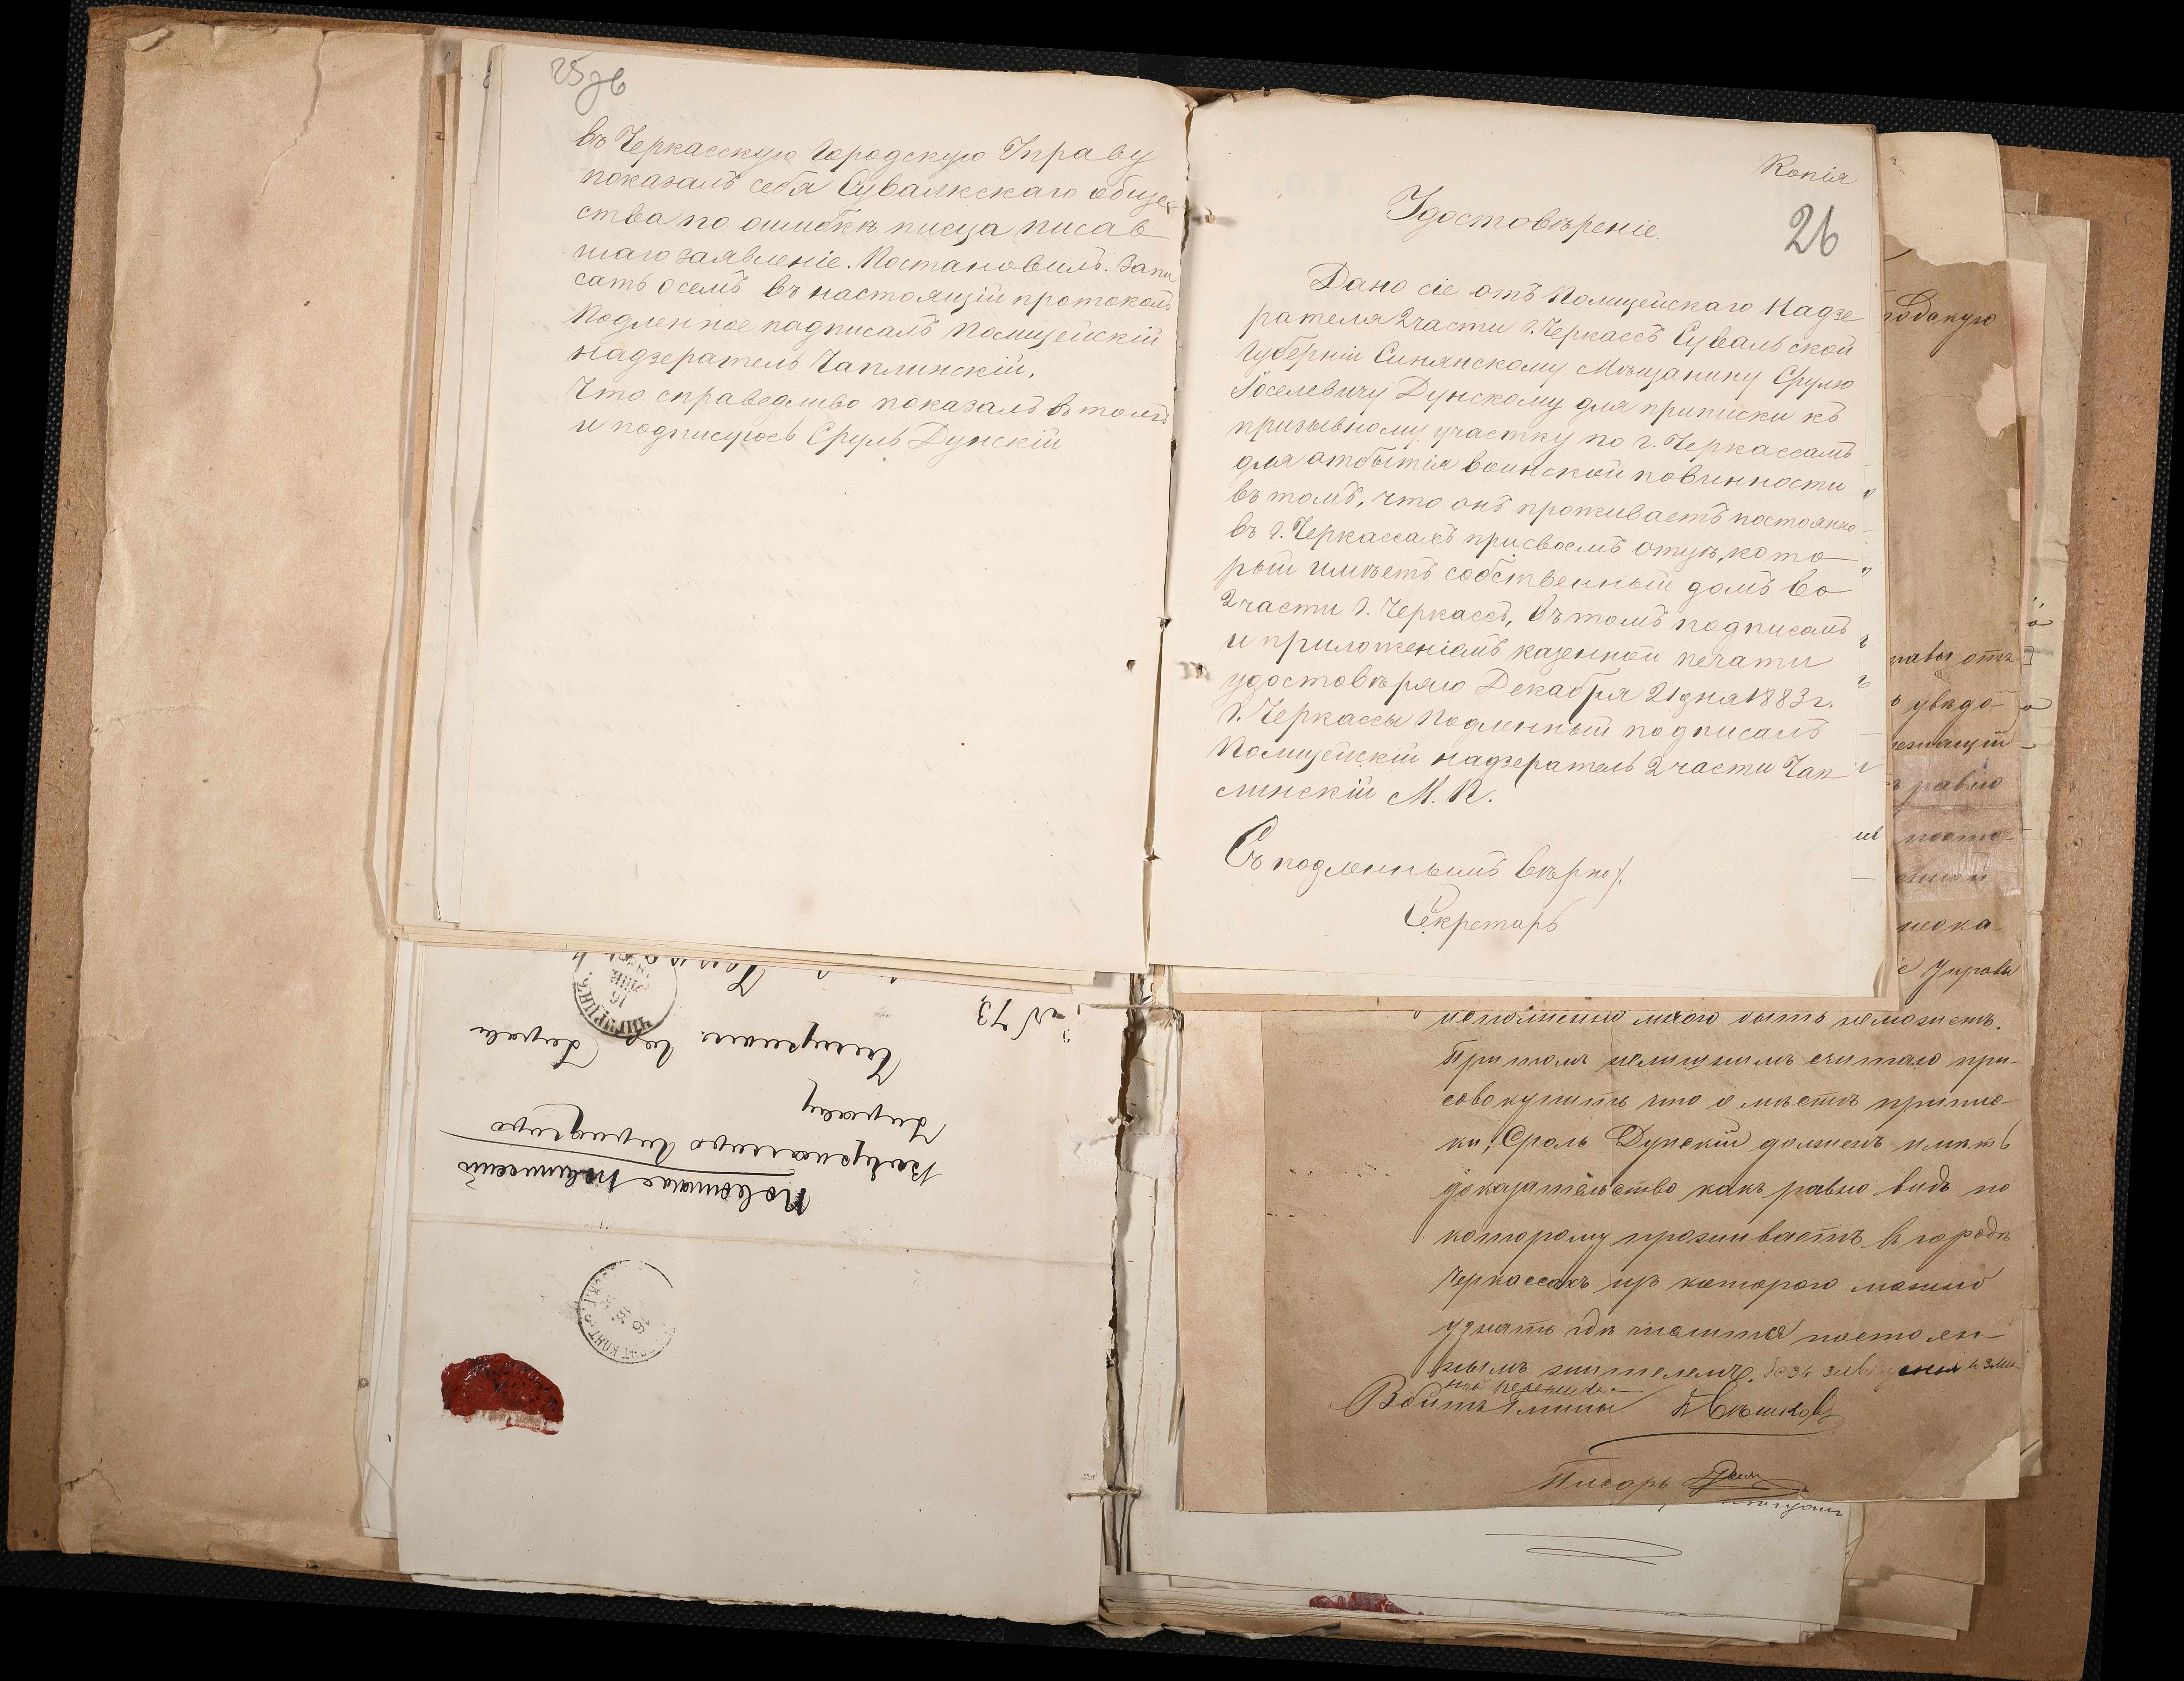 25 зв
въ Черкасскую Городскую Управу
показалъ себя Сувалкскаго обще
ства по ошибкѣ писца писав
шаго заявленіе. Постановилъ. Запи
сать о семъ въ настоящій протоколъ
Подленное подписалъ Полицейскій
надзератель Чаплинскій.
Что справедливо показалъ въ томъ
и подписуюсь Сруль Дунскій
Копія
26
Удостовѣреніе.
Дано сіе отъ Полицейскаго Надзе
рателя 2 части г. Черкассъ Сувальской
Губерніи Синянскому Мѣщанину Срулю
Іоселевичу Дунскому для приписки къ
призывному участку по г. Черкассамъ
для отбытія воинской повинности
въ томъ, что онъ проживаетъ постоянно
въ г. Черкассахъ при своемъ отцѣ, кото
рый имѣетъ собственный домъ во
2 части г. Черкассъ, въ томъ подписомъ
и приложеніемъ казенной печати
удостовѣряю Декабря 21 дня 1883 г.
г. Черкассы Подленный подписалъ
Полицейскій надзератель 2 части Чап
линскій М. П.
Съ подленнымъ вѣрно:
Секретарь
№ 73
Чигиринъ. Гор. Управа
Управу
Черкасскую Городскую
ЧИГИРИНЪ
16
исполнено мною быть неможетъ.
При томъ нелишнимъ считаю при-
совокупить что о мѣстѣ припис-
ки, Сроль Дунскій долженъ имѣть
доказательство какъ равно видъ по
которому проживаетъ въ городѣ
Черкассахъ изъ котораго можно
узнать гдѣ числится постоян-
нымъ жителемъ.
Войтъ Гмины
Писарь